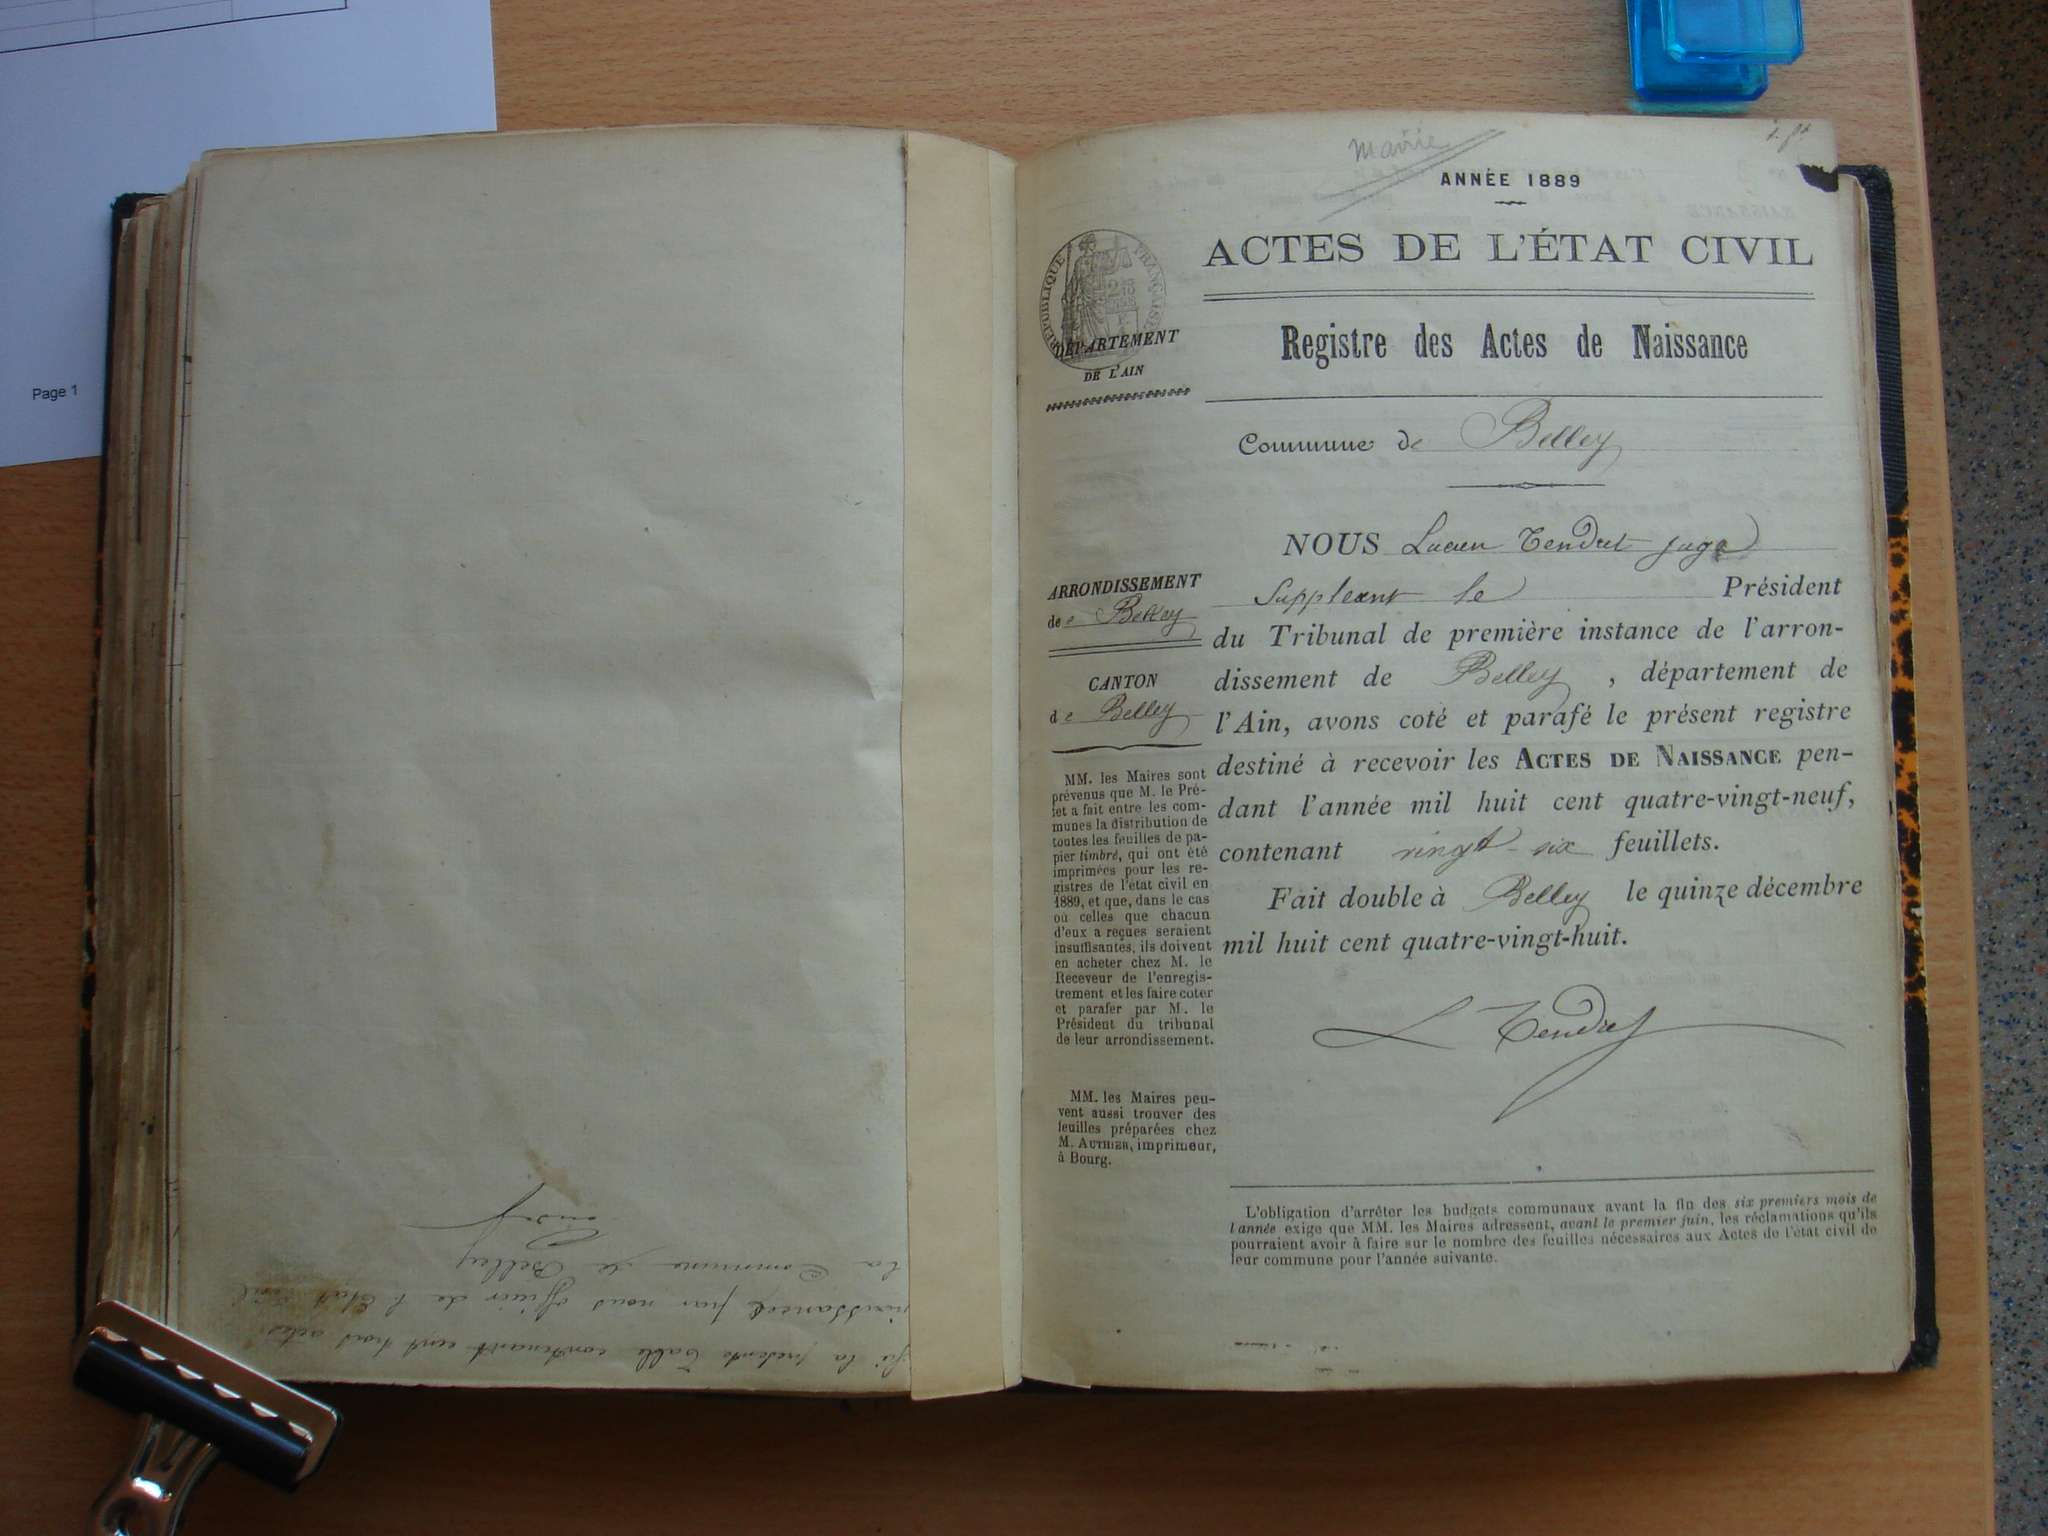 Page 1
fin la présente Table contenant cent trois actes
naissances par nous officier de l'Etat civil
la Commune de Belley
Mairie
ANNÉE 1889
ACTES DE L'ÉTAT CIVIL
RÉPUBLIQUE FRANÇAISE
DÉPARTEMENT
DE L'AIN
Registre des Actes de Naissance
Commune de Belley
ARRONDISSEMENT
de Belley
CANTON
de Belley
MM. les Maires sont
prévenus que M. le Pré-
fet a fait entre les com-
munes la distribution de
toutes les feuilles de pa-
pier timbré, qui ont été
imprimées pour les re-
gistres de l'état civil en
1889, et que, dans le cas
où celles que chacun
d'eux a reçues seraient
insuffisantes, ils doivent
en acheter chez M. le
Receveur de l'enregis-
trement et les faire coter
et parafer par M. le
Président du tribunal
de leur arrondissement.
MM. les Maires peu-
vent aussi trouver des
feuilles préparées chez
M. AUTHIER, imprimeur,
à Bourg.
NOUS Lucien Tendret juge
Suppleant le Président
du Tribunal de première instance de l'arron-
dissement de Belley, département de
l'Ain, avons coté et parafé le présent registre
destiné à recevoir les ACTES DE NAISSANCE pen-
dant l'année mil huit cent quatre-vingt-neuf,
contenant vingt-six feuillets.
Fait double à Belley le quinze décembre
mil huit cent quatre-vingt-huit.
L Tendret
L'obligation d'arrêter les budgets communaux avant la fin des six premiers mois de
l'année exige que MM. les Maires adressent, avant le premier juin, les réclamations qu'ils
pourraient avoir à faire sur le nombre des feuilles nécessaires aux Actes de l'état civil de
leur commune pour l'année suivante.